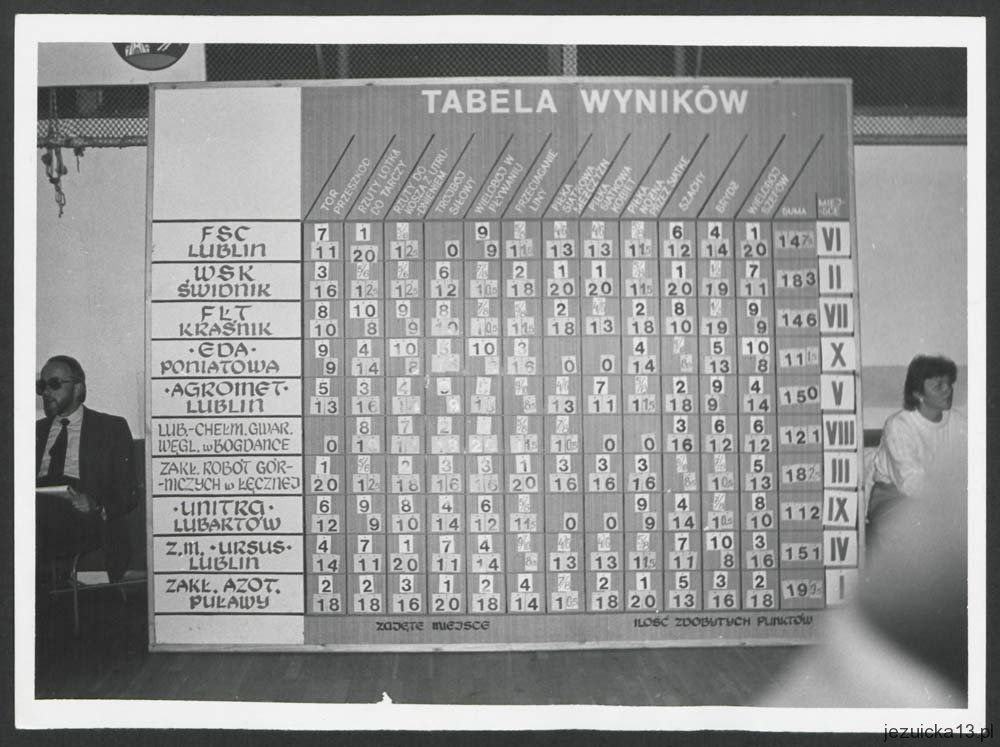 TABELA WYNIKÓW
TOR PRZESZKÓD
RZUTY LOTKĄ DO TARCZY
TRÓJBÓJ SIŁOWY
WIELOBÓJ W PŁYWANIU
PRZECIĄGANIE LINY
SZACHY
BRYDŻ
WIELOBÓJ SZEFÓW
SUMA
MIEJSCE
FSC LUBLIN
7 1 9 6 4 1
11 20 0 9 13 13 12 14 20 VI
WSK ŚWIDNIK
3 6 2 1 1 1 7
16 12 18 20 20 20 19 11 183 II
FŁT KRAŚNIK
8 10 9 8 2 2 8 9
10 8 9 18 13 18 10 19 9 146 VII
·EDA· PONIATOWA
9 4 10 10 3 4 5 10
9 14 8 16 0 0 14 13 8 X
·AGROMET· LUBLIN
5 3 7 2 9 4
13 16 13 11 18 9 14 150 V
LUB.-CHEŁM. GWAR. WĘGL. w BOGDANCE
8 7 2 3 6 6
0 0 0 16 12 12 121 VIII
ZAKŁ. ROBÓT GÓR-
-NICZYCH w ŁĘCZNEJ
1 2 3 3 1 3 3 3 5
20 18 16 16 20 16 16 16 13 III
·UNITRA· LUBARTÓW
6 9 8 4 6 9 4 8
12 9 10 14 12 0 0 9 14 10 112 IX
Z.M. ·URSUS· LUBLIN
4 7 1 7 4 7 10 3
14 11 20 11 14 13 13 11 8 16 151 IV
ZAKŁ. AZOT. PUŁAWY
2 2 3 1 2 4 2 1 5 3 2
18 18 16 20 18 14 18 20 13 16 18 I
ZAJĘTE MIEJSCE
ILOŚĆ ZDOBYTYCH PUNKTÓW
jezuicka13.pl